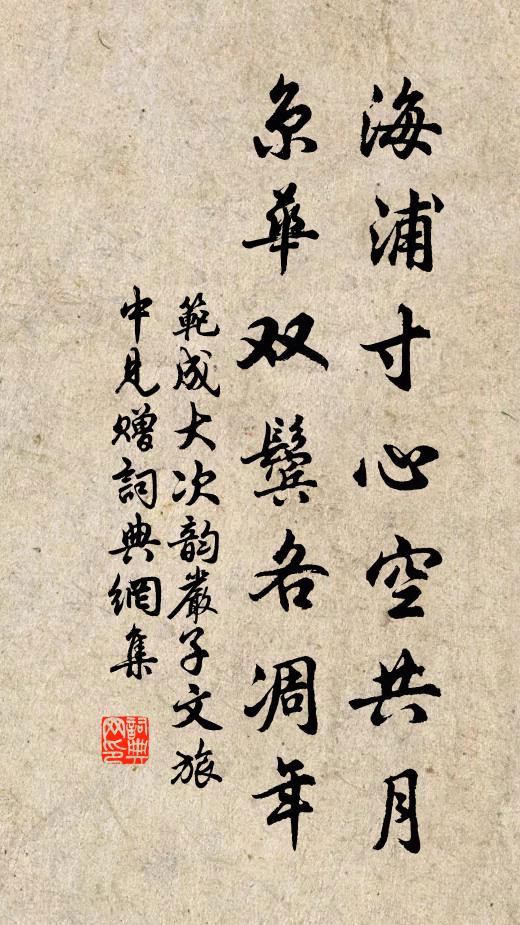 海浦寸心空共月
京華双鬢各凋年
範成大次韵嚴子文旅
中見贈詞典網集
詞典
网印